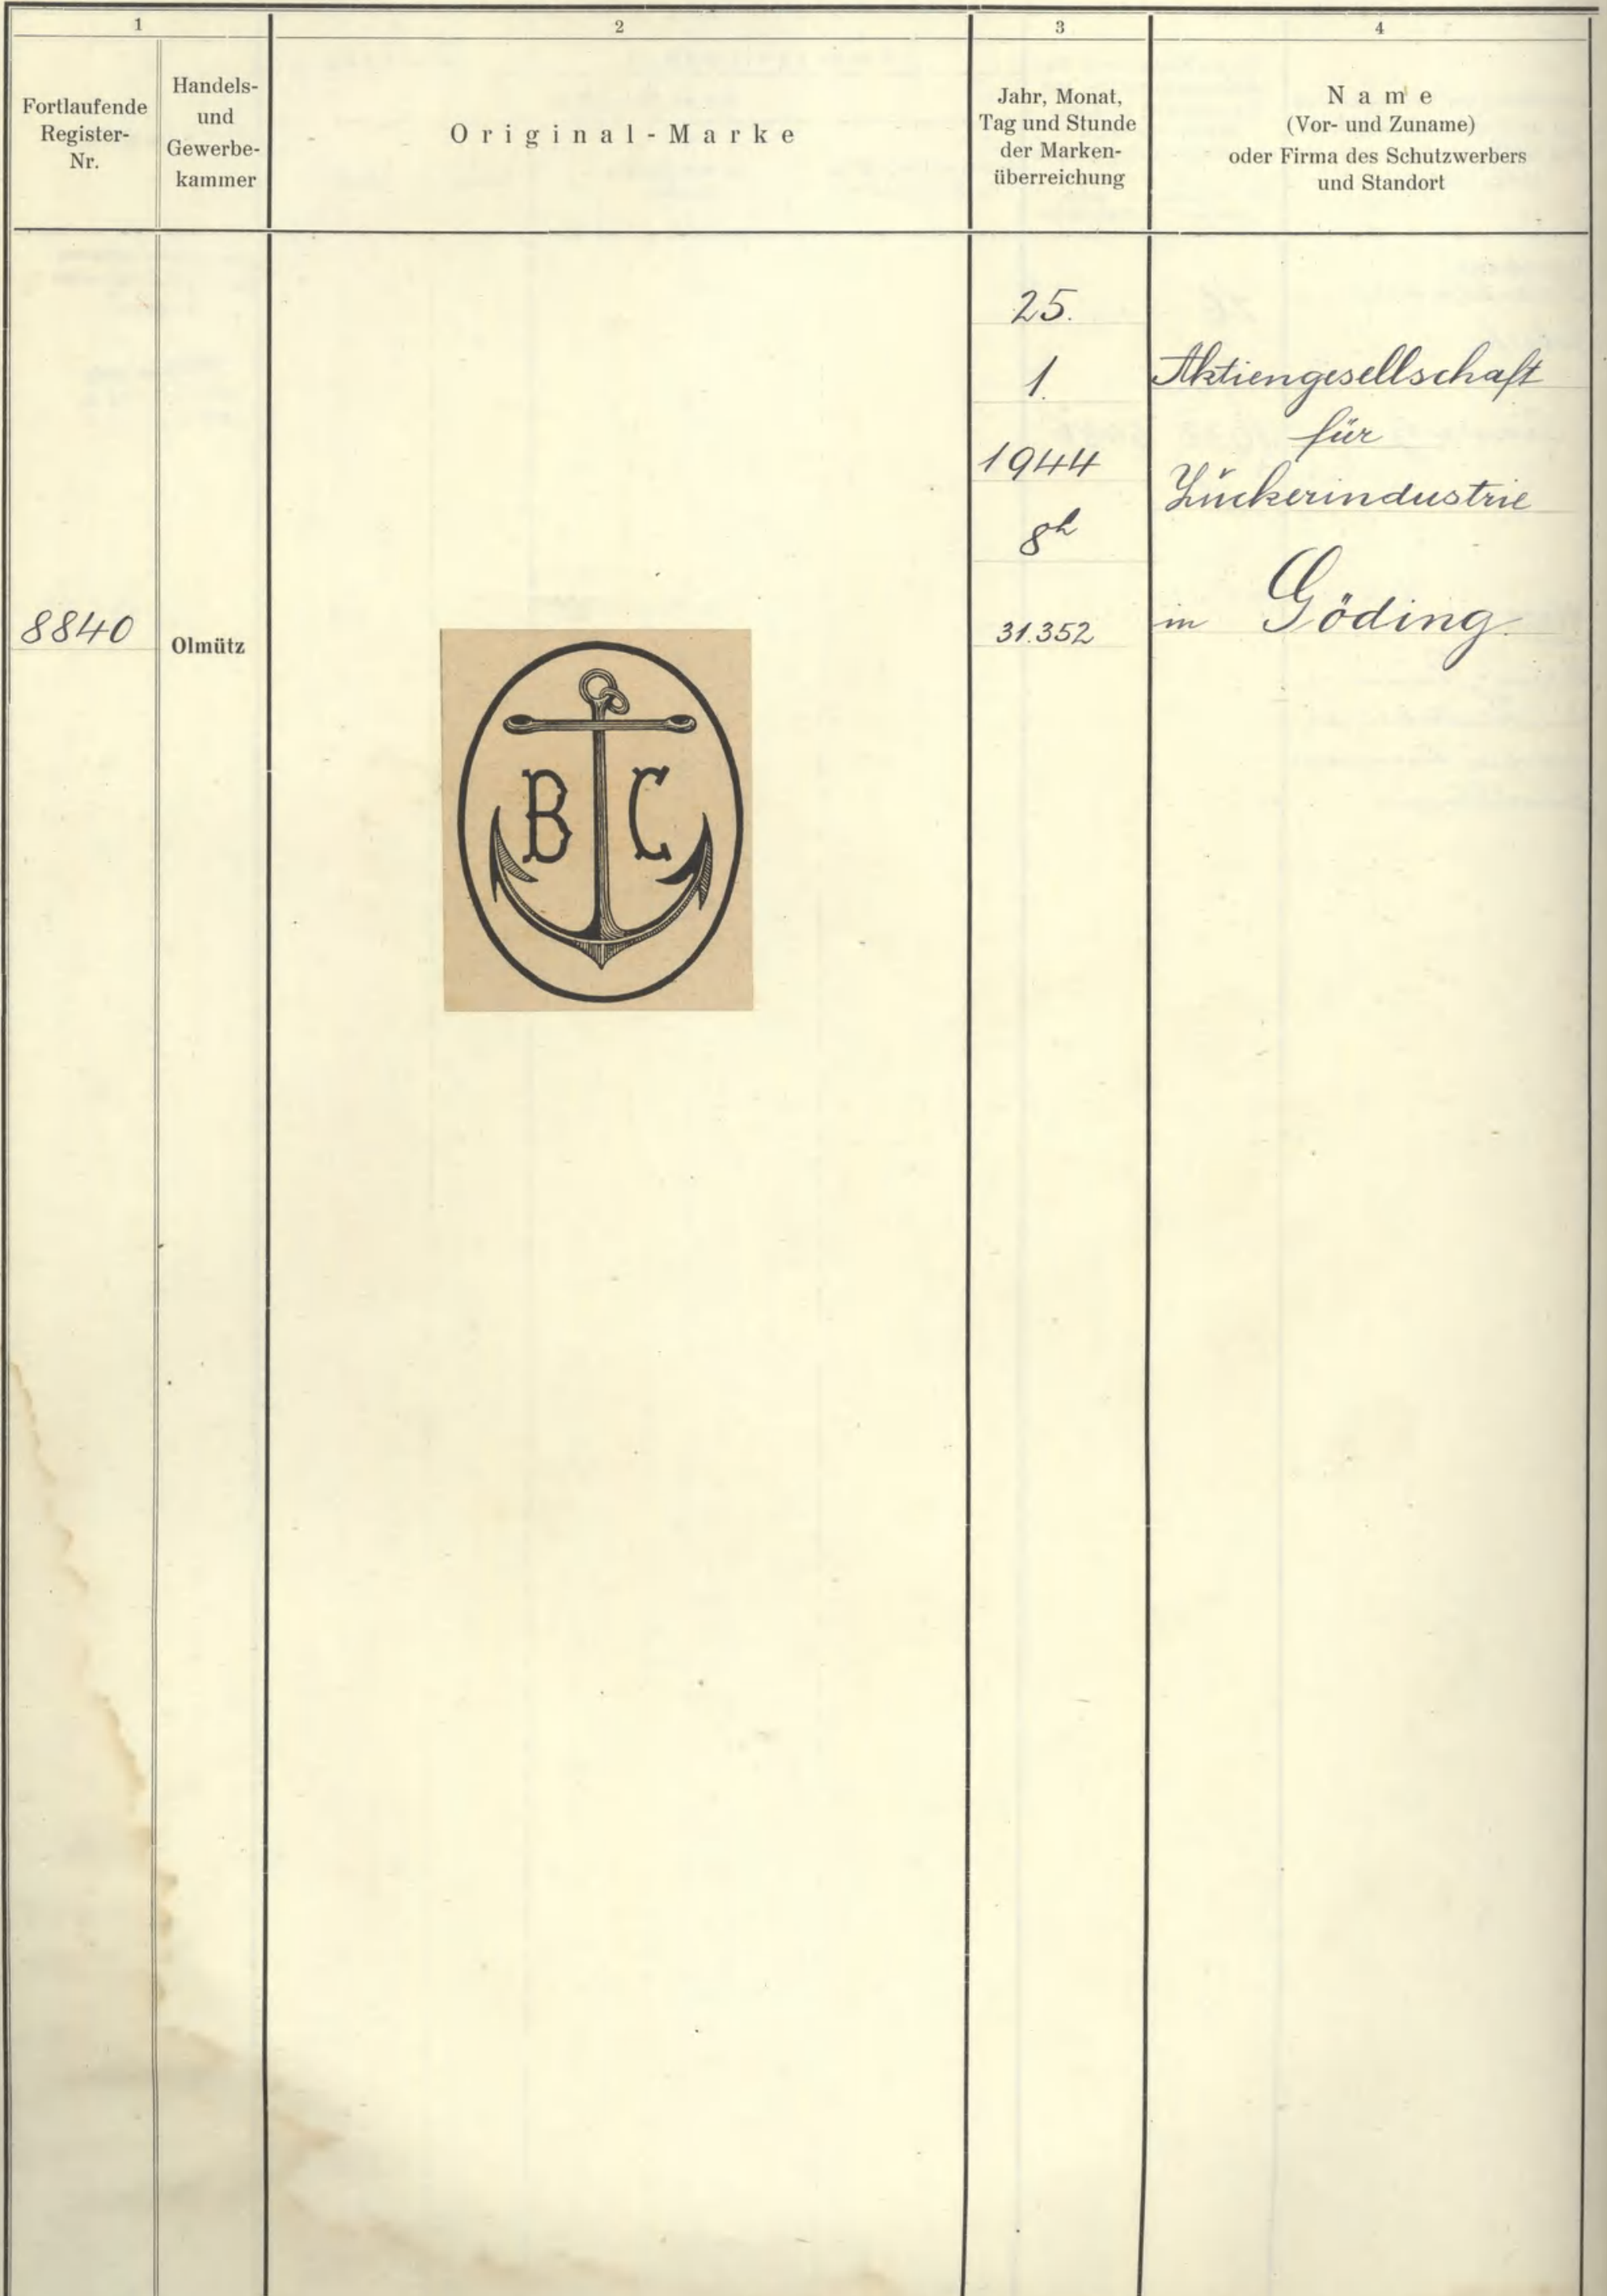 1
2
3
4
Fortlaufende
Register-
Nr.
Handels-
und
Gewerbe-
kammer
Original-Marke
Jahr, Monat,
Tag und Stunde
der Marken-
überreichung
Name
(Vor- und Zuname)
oder Firma des Schutzwerbers
und Standort
8840
Olmütz
B C
25.
1.
1944
8h
31.352
Aktiengesellschaft
für
Zuckerindustrie
in Göding.